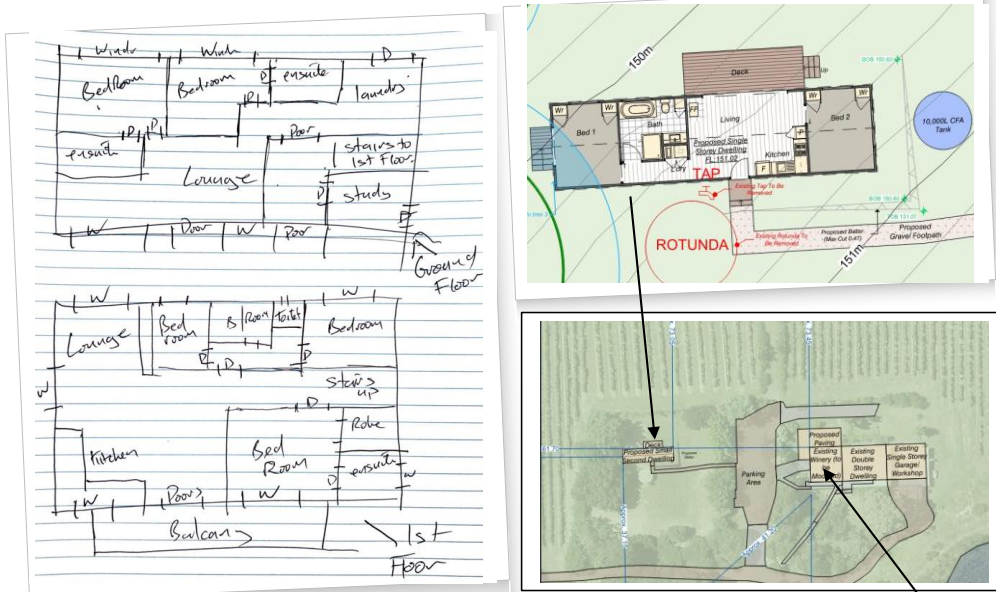 Windo
Windo
D
BedRoom
Bedroom
D
ensuite
laundry
D
D
D
ensuite
Door
Lounge
stairs to
1st Floor
D
study
D
W
Door
W
Door
Ground
Floor
W
W
Lounge
Bed
room
B
Room
Toilet
Bedroom
D
D
D
W
stairs
up
D
Robe
Kitchen
Bed
Room
ensuite
D
W
W
Doors
W
Balcony
1st
Floor
150m
Deck
Up
BOB 150.60
Wr
Wr
Wr
Wr
Bed 1
Bath
FP
Living
Bed 2
10,000L CFA
Tank
Proposed Single
Storey Dwelling
FL:151.02
P
Kitchen
L'dry
TAP
Existing Tap To Be
Removed
BOB 150.60
TOB 151.07
ROTUNDA
Existing Rotunda To
Be Removed
Proposed Batter
(Max Cut 0.47)
Proposed
Gravel Footpath
151m
Deck
Proposed Small
Second Dwelling
61.70
Parking
Area
Proposed
Paving
Existing
Winery (to
be
Existing
Double
Storey
Dwelling
Existing
Single Storey
Garage/
Workshop